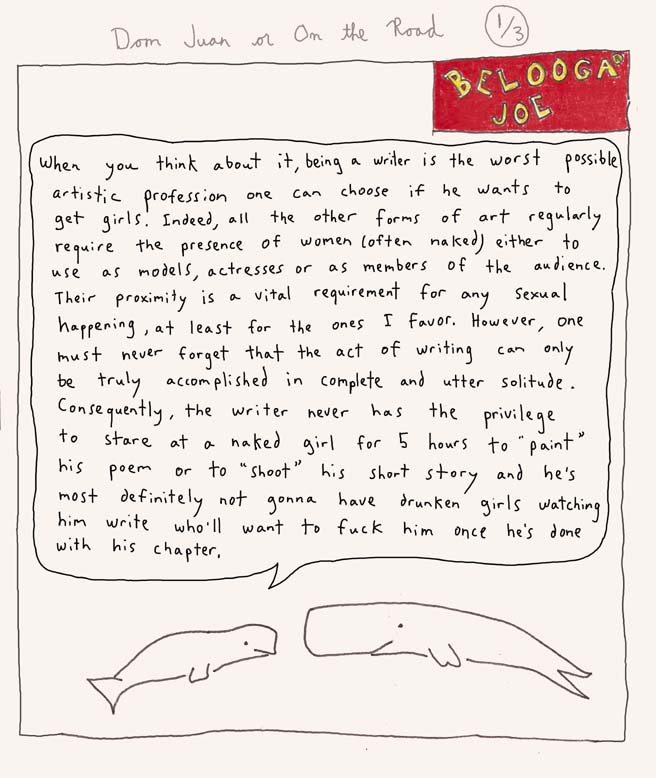 Dom Juan or On the Road 1/3
BELOOGA
JOE
When you think about it, being a writer is the worst possible
artistic profession one can choose if he wants to
get girls. Indeed, all the other forms of art regularly
require the presence of women (often naked) either to
use as models, actresses or as members of the audience.
Their proximity is a vital requirement for any sexual
happening, at least for the ones I favor. However, one
must never forget that the act of writing can only
be truly accomplished in complete and utter solitude.
Consequently, the writer never has the privilege
to stare at a naked girl for 5 hours to "paint"
his poem or to "shoot" his short story and he's
most definitely not gonna have drunken girls watching
him write who'll want to fuck him once he's done
with his chapter.